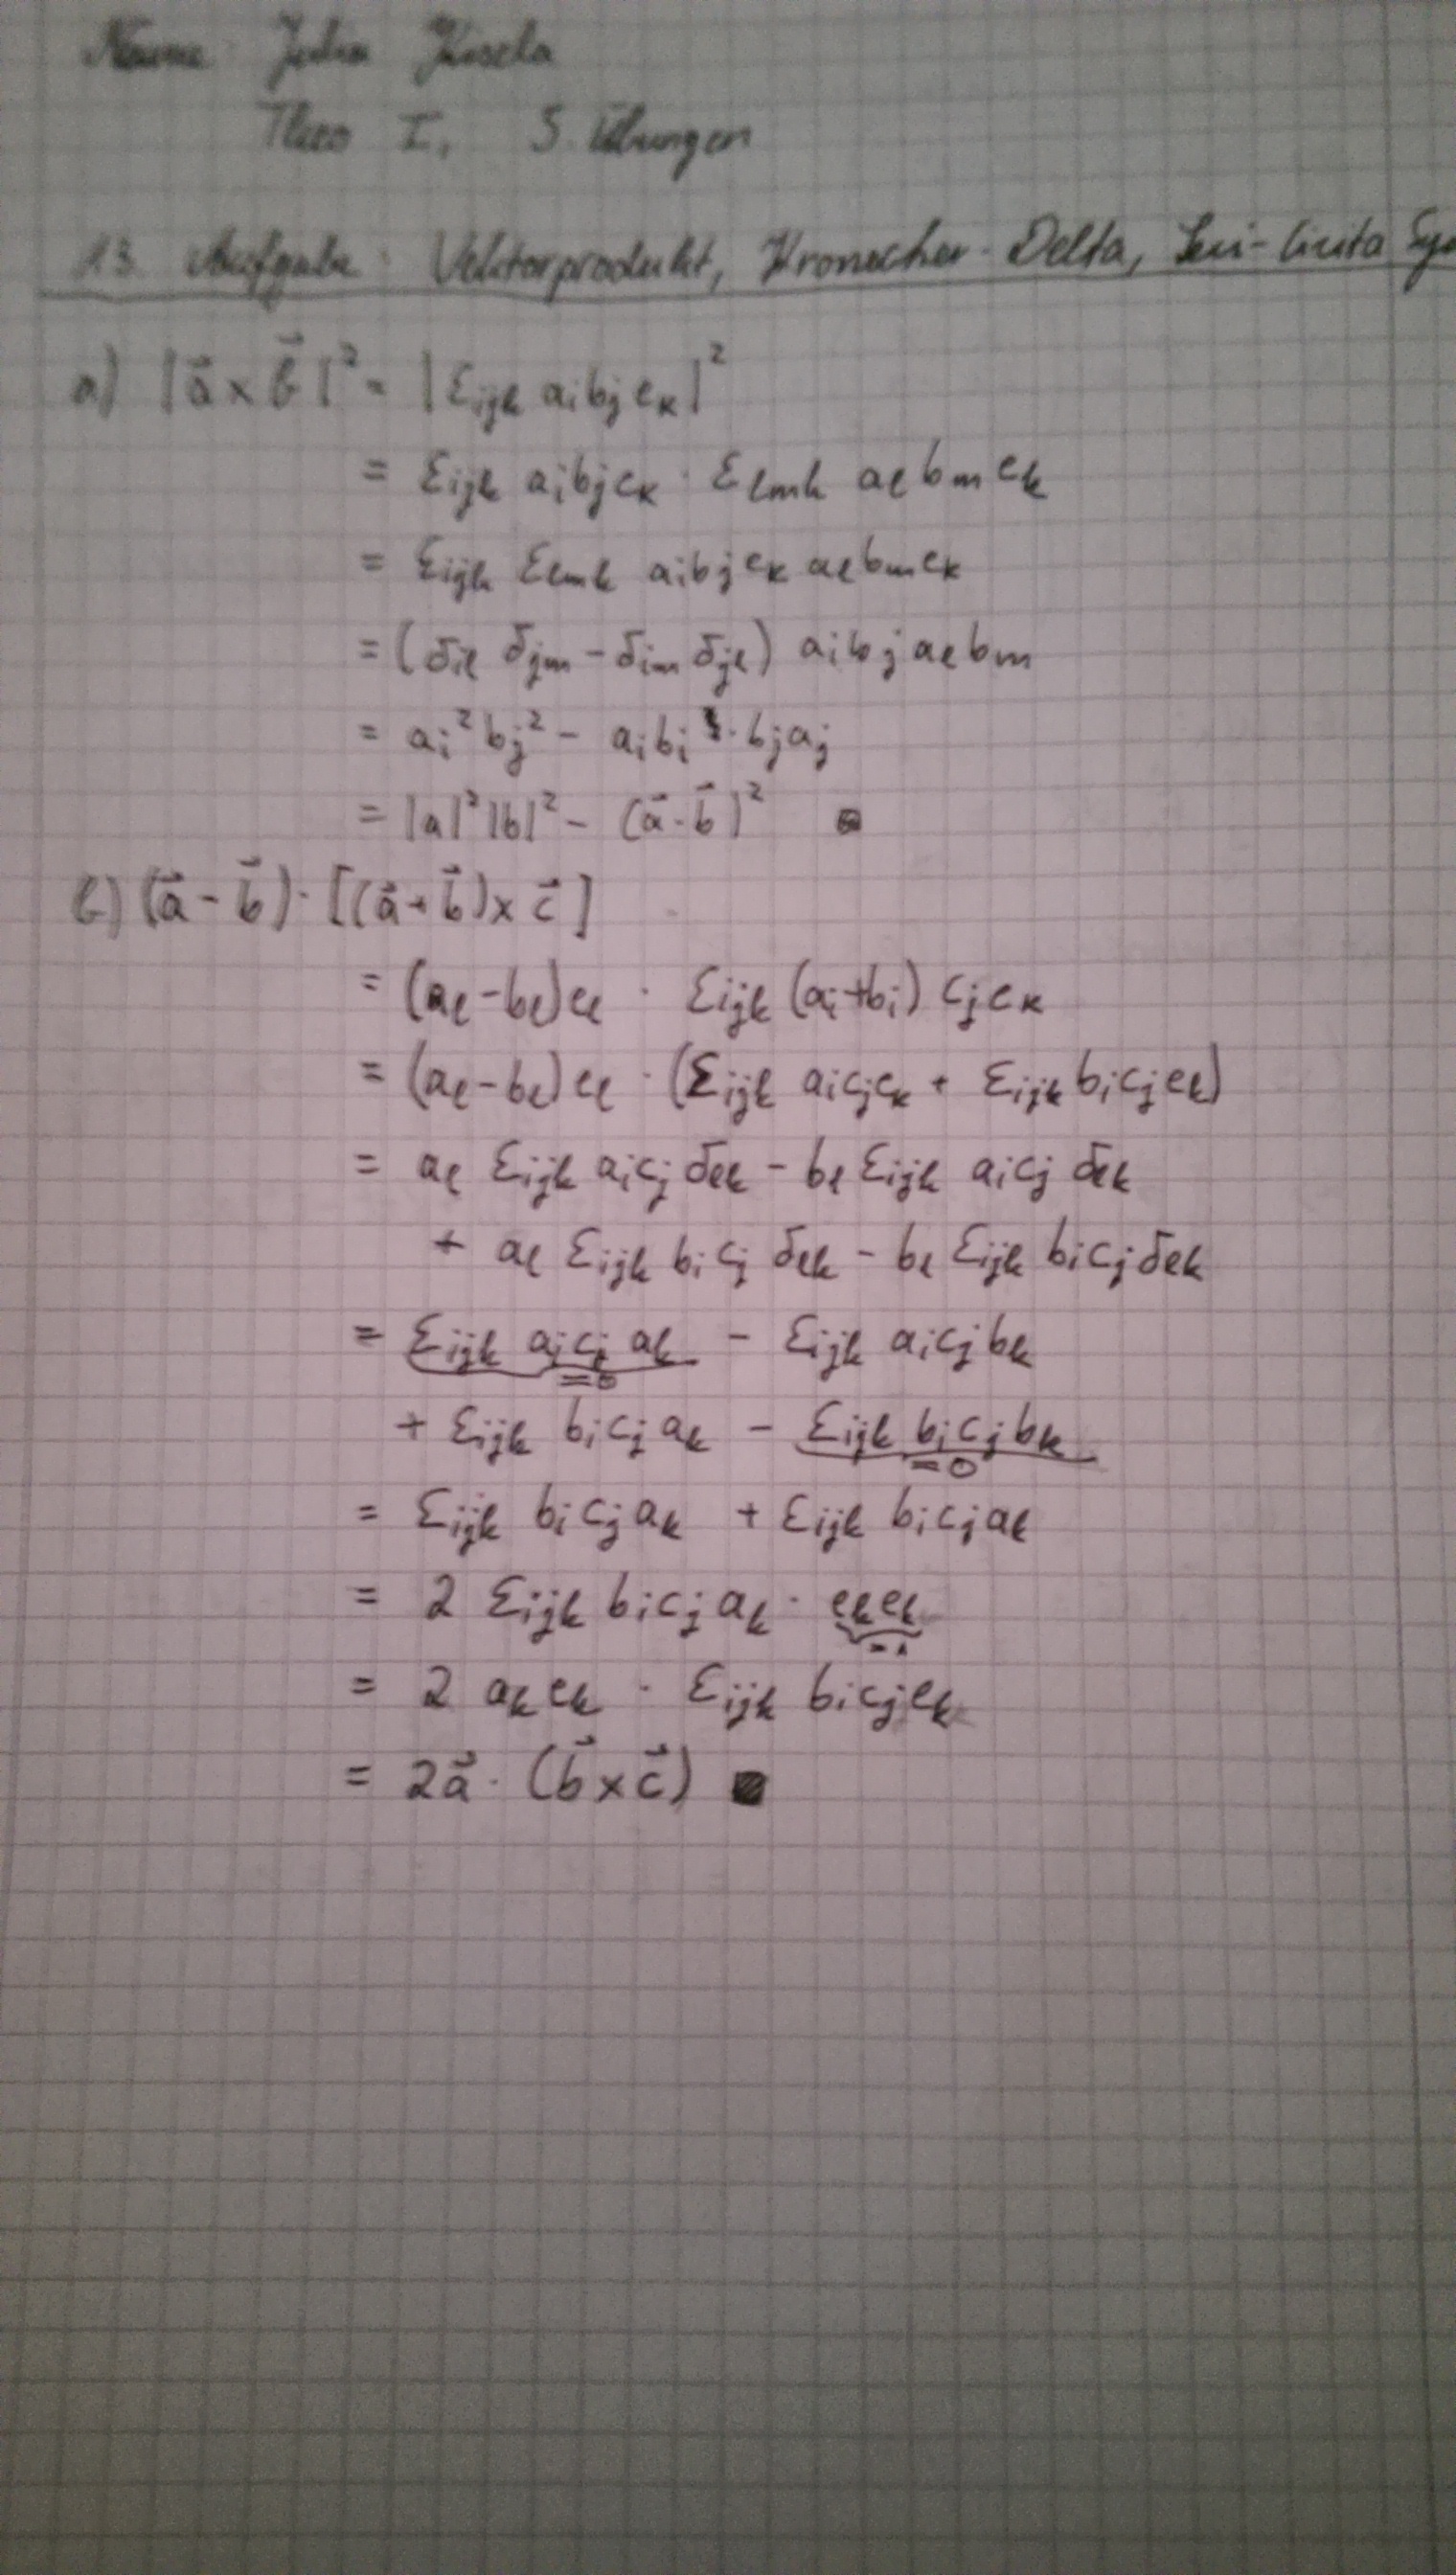 Name: Julia
Theo I, 5. Übungen
13. Aufgabe: Vektorprodukt, Kronecker-Delta, Levi-Civita Sy
a) |a⃗ × b⃗|² = |εijk aibjek|²
= εijk aibjek · εlmk albmek
= εijk εlmk aibjek albmek
= (δil δjm - δim δjl) aibjalbm
= ai²bj² - aibi · bjaj
= |a|²|b|² - (a⃗·b⃗)² ■
b) (a⃗ - b⃗) · [(a⃗ + b⃗) × c⃗]
= (al - bl)el · εijk (ai+bi) cjek
= (al - bl)el · (εijk aicjek + εijk bicjek)
= al εijk aicj δlk - bl εijk aicj δlk
+ al εijk bicj δlk - bl εijk bicj δlk
= εijk aicj ak - εijk aicjbk
=0
+ εijk bicjak - εijk bicjbk
=0
= εijk bicjak + εijk bicjak
= 2 εijk bicjak · ekek
=1
= 2 akek · εijk bicjek
= 2a⃗ · (b⃗×c⃗) ■